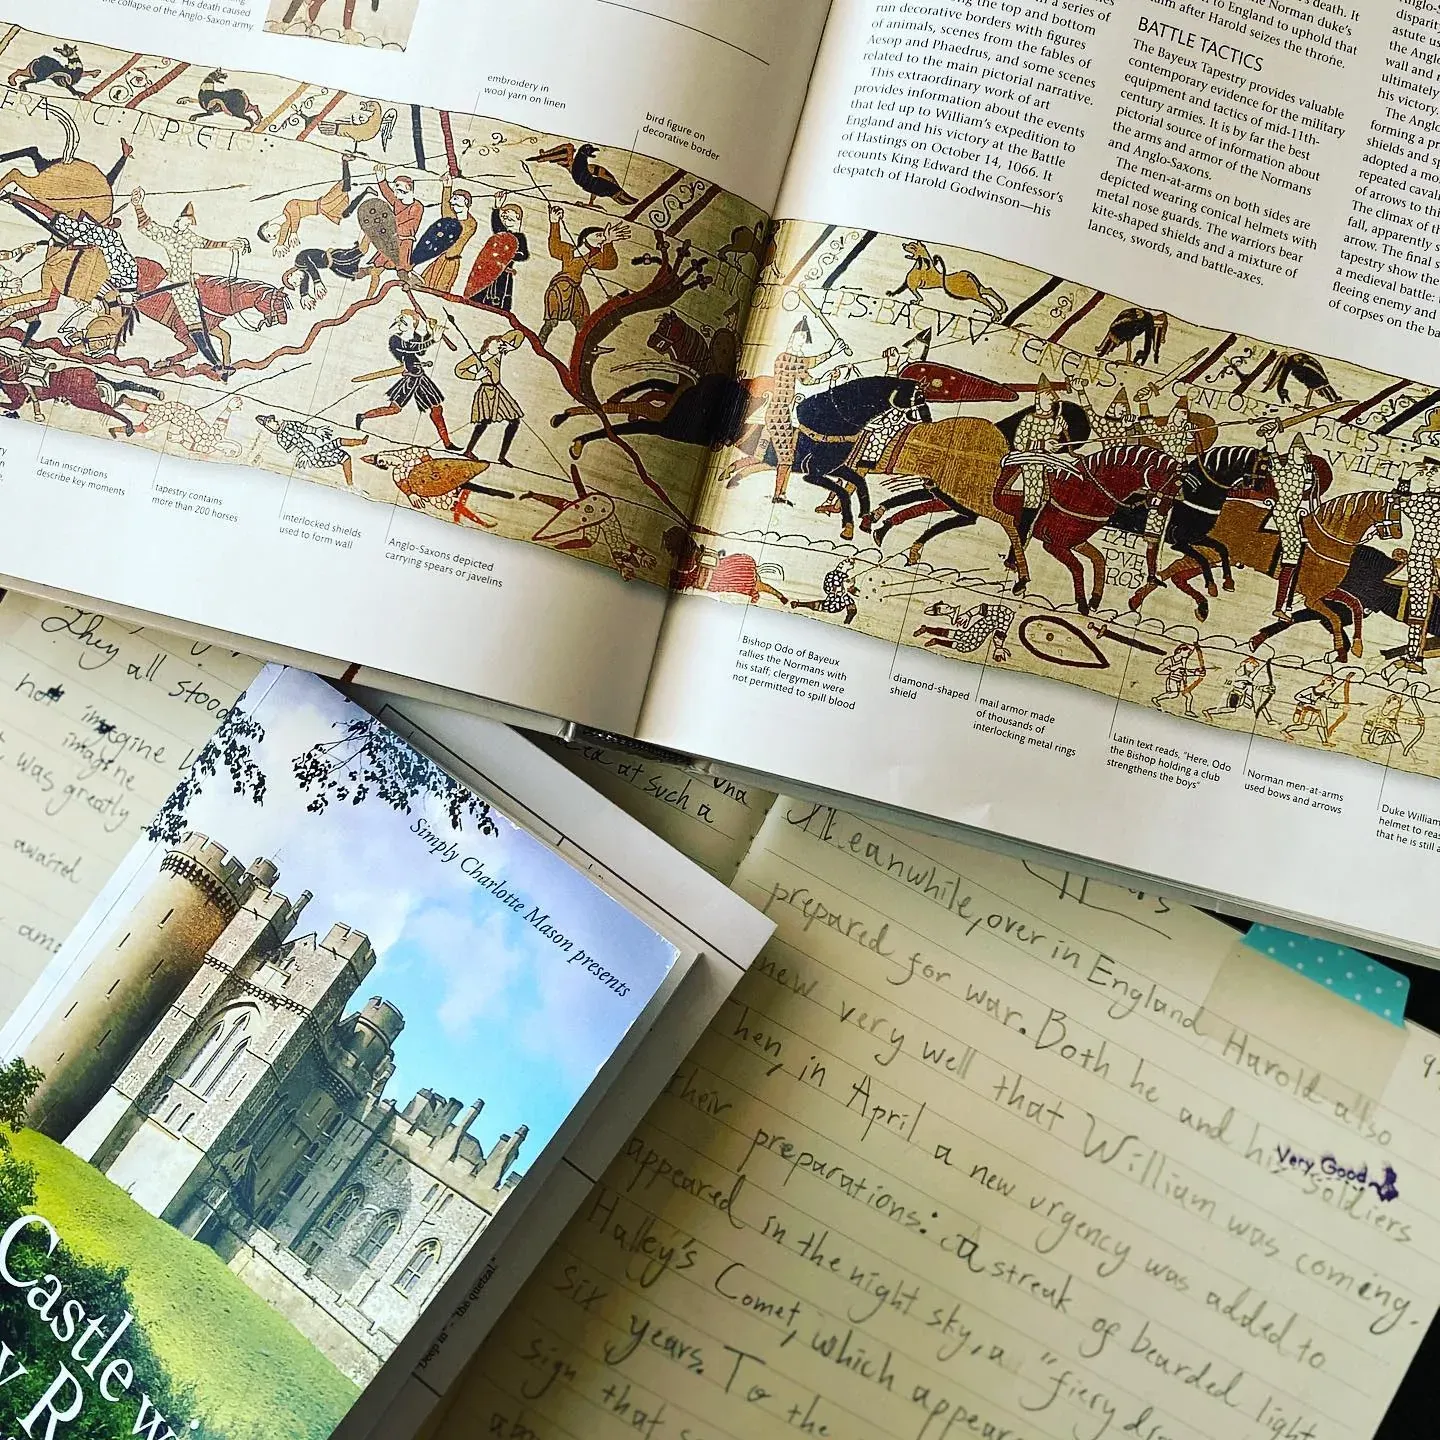 His death caused
the collapse of the Anglo-Saxon army
embroidery in
wool yarn on linen
bird figure on
decorative border
ERA ET: INPRELIO:
Latin inscriptions
describe key moments
tapestry contains
more than 200 horses
interlocked shields
used to form wall
Anglo-Saxons depicted
carrying spears or javelins
in a series of
the top and bottom
run decorative borders with figures
of animals, scenes from the fables of
Aesop and Phaedrus, and some scenes
related to the main pictorial narrative.
This extraordinary work of art
provides information about the events
that led up to William's expedition to
England and his victory at the Battle
of Hastings on October 14, 1066. It
recounts King Edward the Confessor's
despatch of Harold Godwinson—his
the Norman duke's
to England to uphold that
after Harold seizes the throne.
death. It
BATTLE TACTICS
The Bayeux Tapestry provides valuable
contemporary evidence for the military
equipment and tactics of mid-11th-
century armies. It is by far the best
pictorial source of information about
the arms and armor of the Normans
and Anglo-Saxons.
The men-at-arms on both sides are
depicted wearing conical helmets with
metal nose guards. The warriors bear
kite-shaped shields and a mixture of
lances, swords, and battle-axes.
disparity
astute us
the Anglo
wall and
ultimately
his victory.
The Anglo
forming a
shields and
adopted a
repeated
of arrows to
The climax of
fall, apparently
arrow. The final
tapestry show the
a medieval battle:
fleeing enemy and
of corpses on the
EPS: BACVLV:
TENENS:
NFOR
HIC EST:
VVILEL
Bishop Odo of Bayeux
rallies the Normans with
his staff; clergymen were
not permitted to spill blood
diamond-shaped
shield
mail armor made
of thousands of
interlocking metal rings
Latin text reads, "Here, Odo
the Bishop holding a club
strengthens the boys"
Norman men-at-arms
used bows and arrows
Duke William
helmet to
that he is still
They all stood
not imagine
imagine
was greatly
awaited
at such a
Simply Charlotte Mason presents
Castle
"Deep in" - "the quetzal"
Meanwhile, over in England Harold also
prepared for war. Both he and his soldiers
knew very well that William was coming.
Then, in April a new urgency was added to
their preparations: a streak of bearded light
appeared in the night sky, a "fiery
Halley's Comet, which
six years. To the
sign that
Very Good